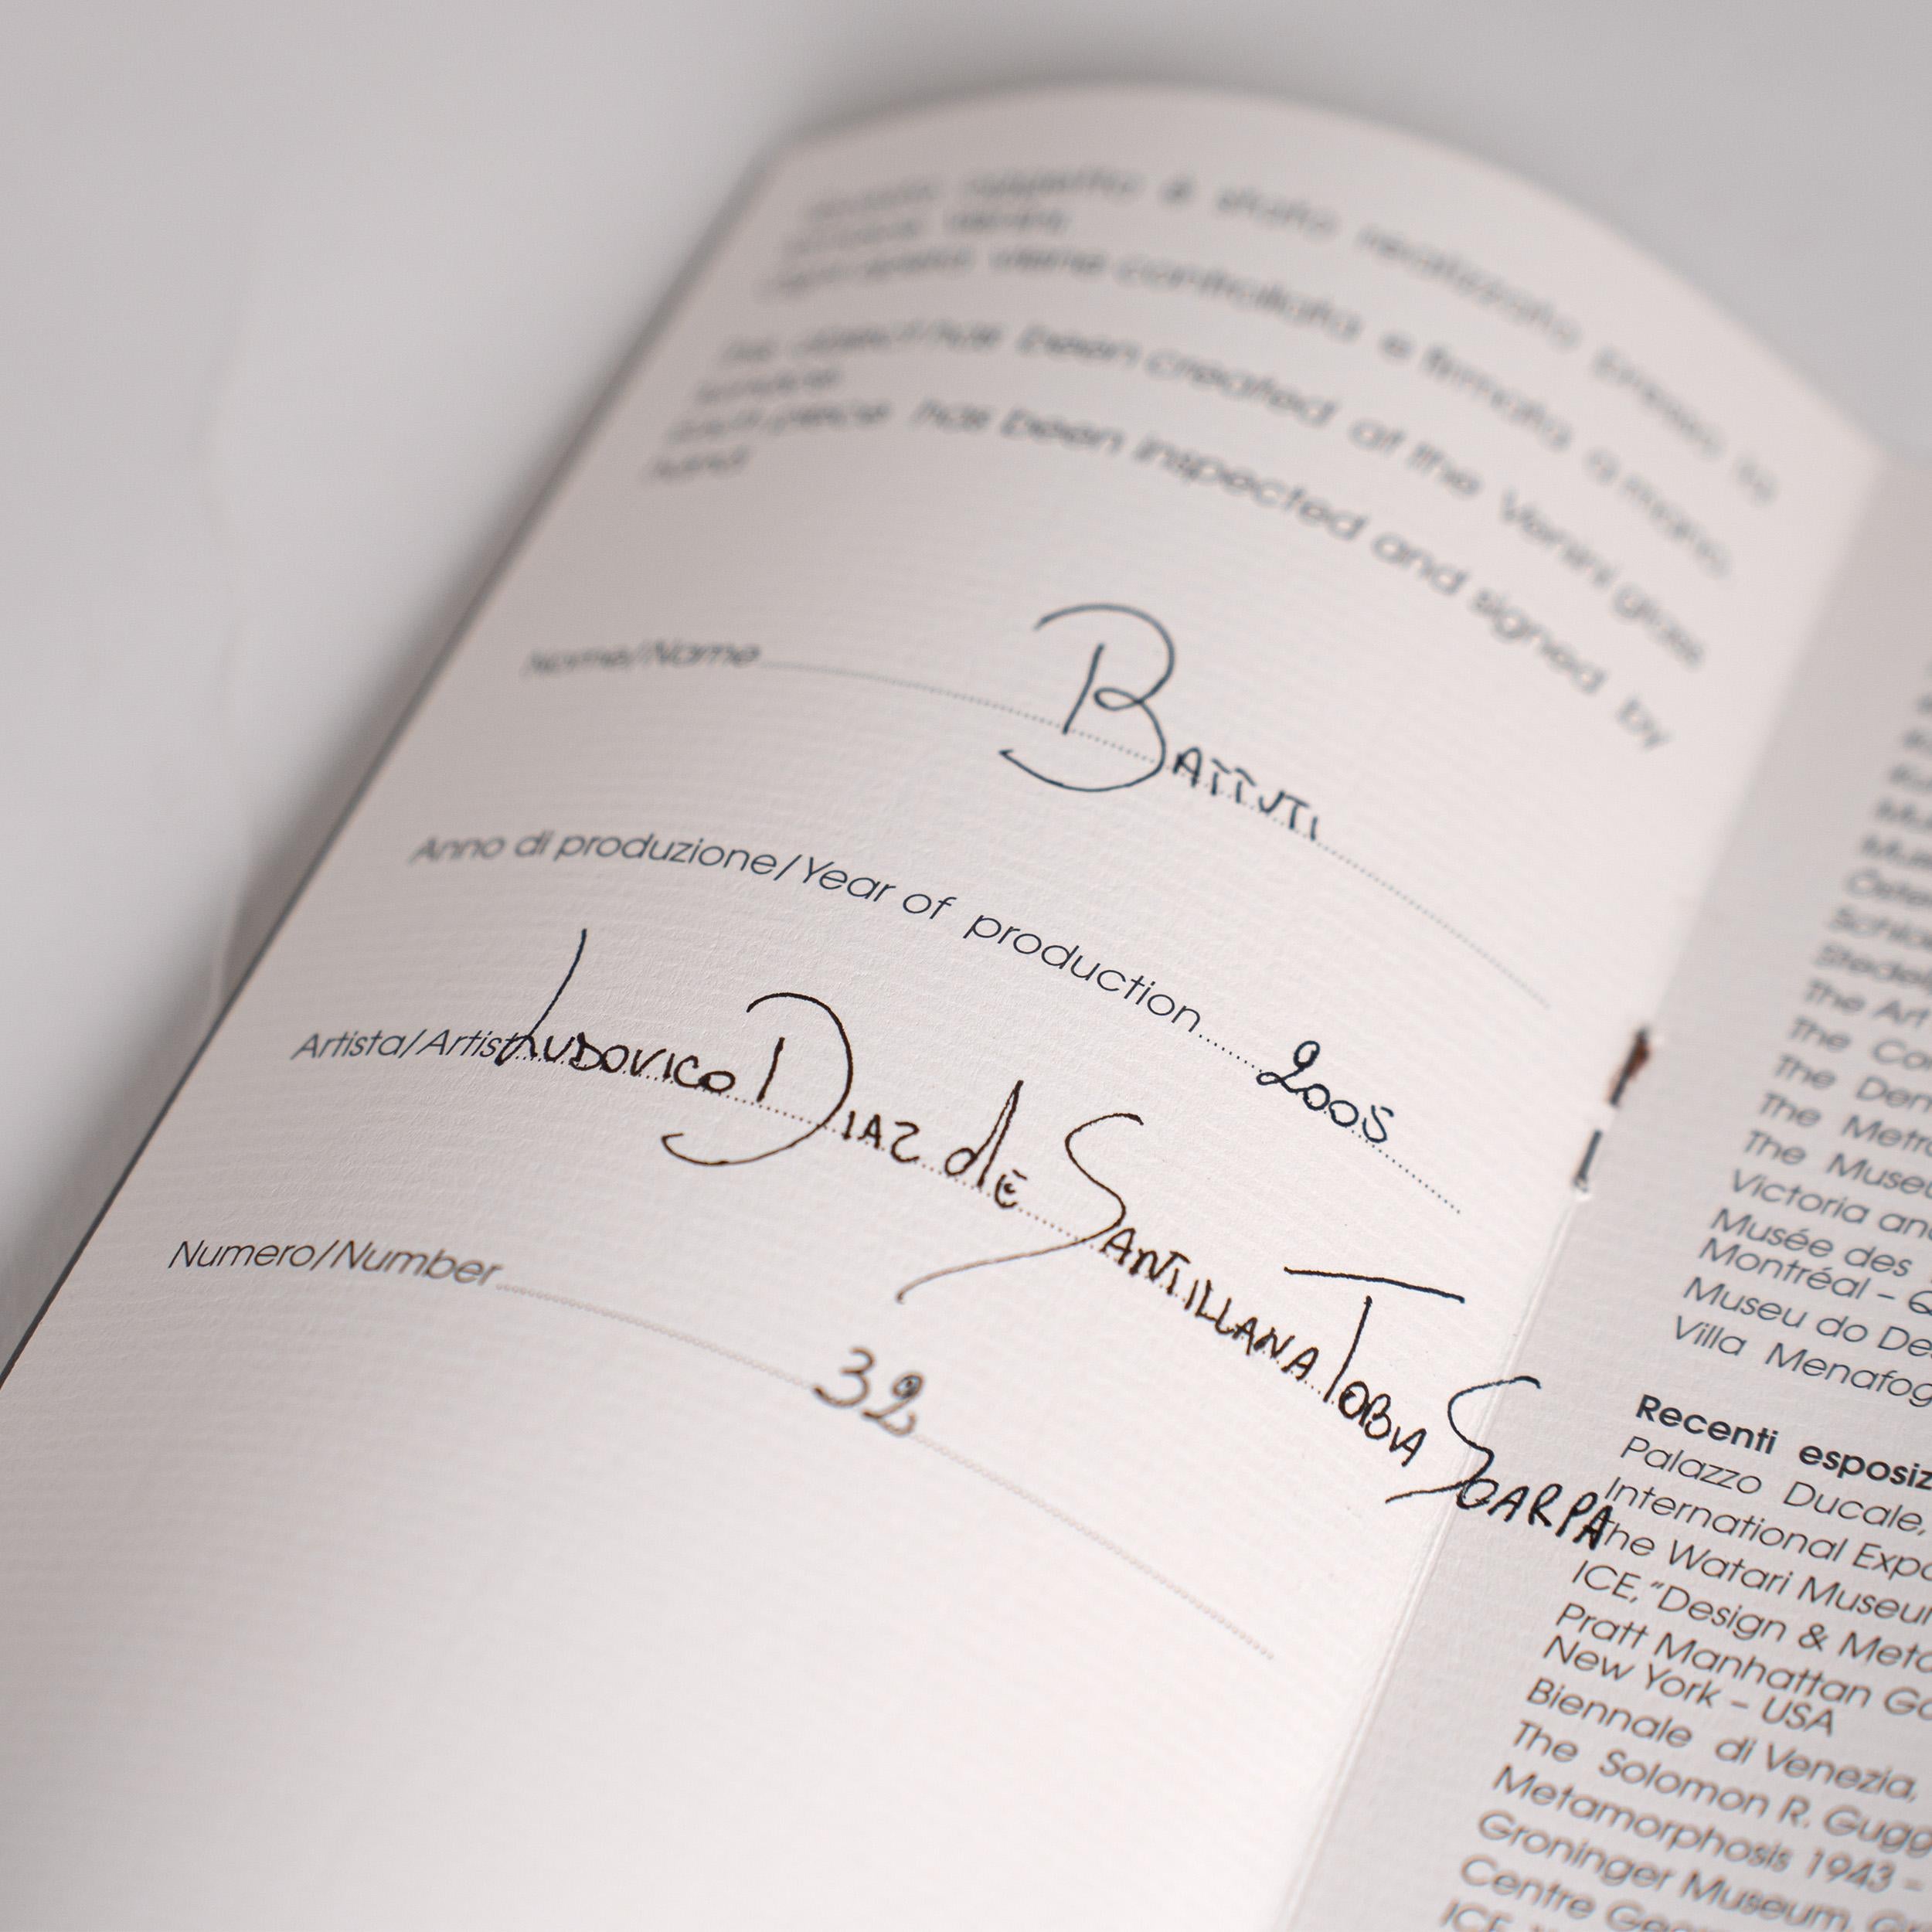 oggetto è stato realizzato presso la
fornace Venini
ogni opera viene controllata e firmata a mano.
This object has been created at the Venini glass
furnace
Each piece has been inspected and signed by
hand
Nome/Name BATTUTI
Anno di produzione/Year of production 2005
Artista/Artist LUDOVICO DIAZ dE SANTILLANA TOBIA SCARPA
Numero/Number 32
The Art
The
The Den
The Metro
The Museu
Victoria and
Musée des
Montréal –
Museu do De
Villa Menafog
Recenti esposiz
Palazzo Ducale,
International Expo
The Watari Museum
ICE, "Design & Meta
Pratt Manhattan Ga
New York – USA
Biennale di Venezia,
The Solomon R. Gugg
Metamorphosis 1943 –
Groninger Museum,
Centre
ICE,